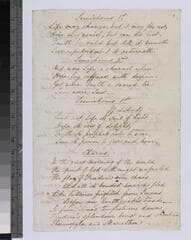 Semichorus 1st
Life may change, but it may fly not,
Hope may vanish, but can die not,
Truth be veiled but still it burneth
Love repulsed but it returneth
Semichorus 2nd
Yet were Life a charnel where
Hope lay coffined with despair
Yet were Truth a sacred lie
Love were Lust
Semichorus 1st
If Liberty
Lent not Life its soul of light
Hope its iris of delight
Truth its prophet's robe to wear
Love its power to give and bear.
Chorus
In the great Morning of the world
The spirit of God with might unfurled
The flag of Freedom over Chaos
And all its banded Anarchs fled
Like Vultures frighted from Imaus
Before an Earthquake's tread
So from Time's tempestuous dawn
Freedom's splendour burst and shone
Thermopylae and Marathon